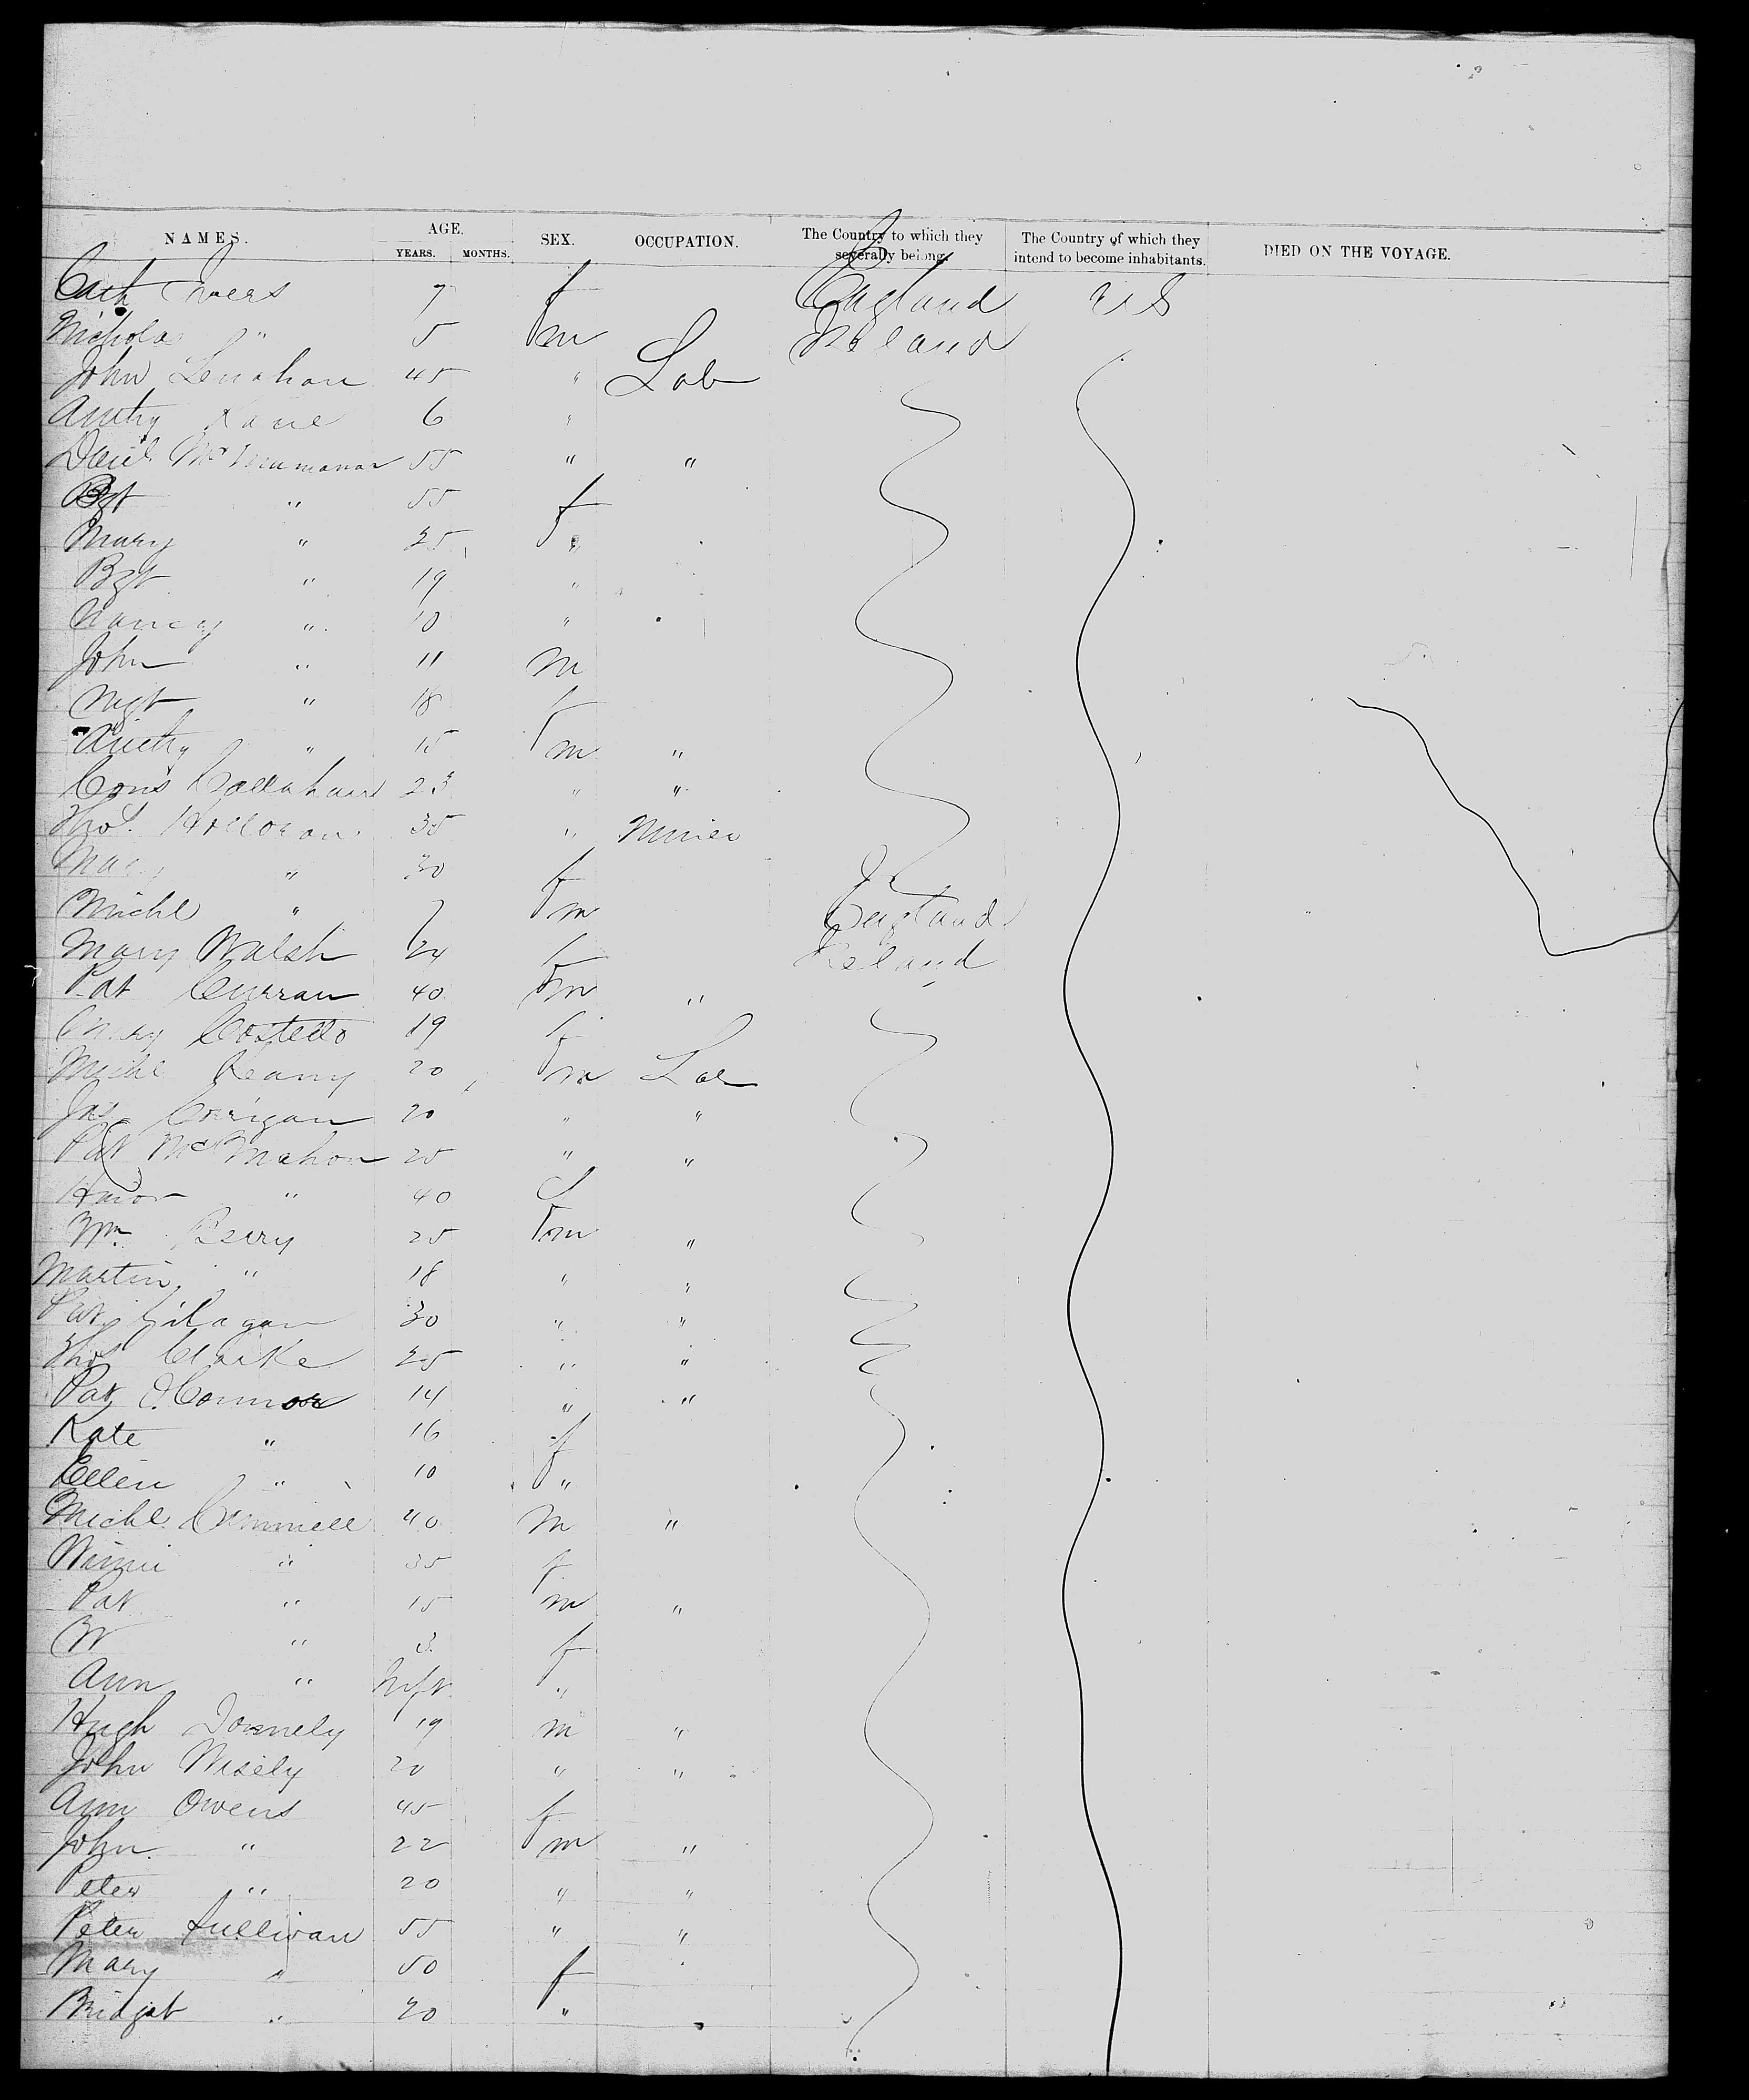 NAMES. AGE. SEX. OCCUPATION. The Country to which they severally belong. The Country of which they intend to become inhabitants. DIED ON THE VOYAGE.
YEARS. MONTHS.
Cath Ivers 7 f England US
Nicholas " 5 m Ireland
John Lenahan 45 " Lab
Anthy Kane 6 "
Danl. 55 " "
Bgt " 55 f
Mary " 25 "
Bgt " 19 "
Nancy " 10 "
John " 11 m
Mgt " 18 f
Anthy " 15 m "
Cons Callahan 23 " "
Thos. Holloran 35 " Miner
Mary " 30 f
Michl " 7 m England
Mary Walsh 24 f Ireland
Pat Curran 40 m "
Mary Costello 19 f
Michl Keany 20 m Lab
Jas Corrigan 20 " "
Pat McMahon 25 " "
Honor " 40 f
Wm Berry 25 m "
Martin " 18 " "
Pat Gilagan 30 " "
Thos Clarke 25 " "
Pat O'Connor 14 " "
Kate " 16 f
Ellen " 10 "
Michl 40 m "
Winni " 35 f
Pat " 15 m "
W " 3 f
Ann " Inft "
Hugh Donnely 19 m "
John Wisely 20 " "
Ann Owens 45 f
John " 22 m "
Peter " 20 " "
Peter Sullivan 55 " "
Mary " 50 f
Bridget " 20 "